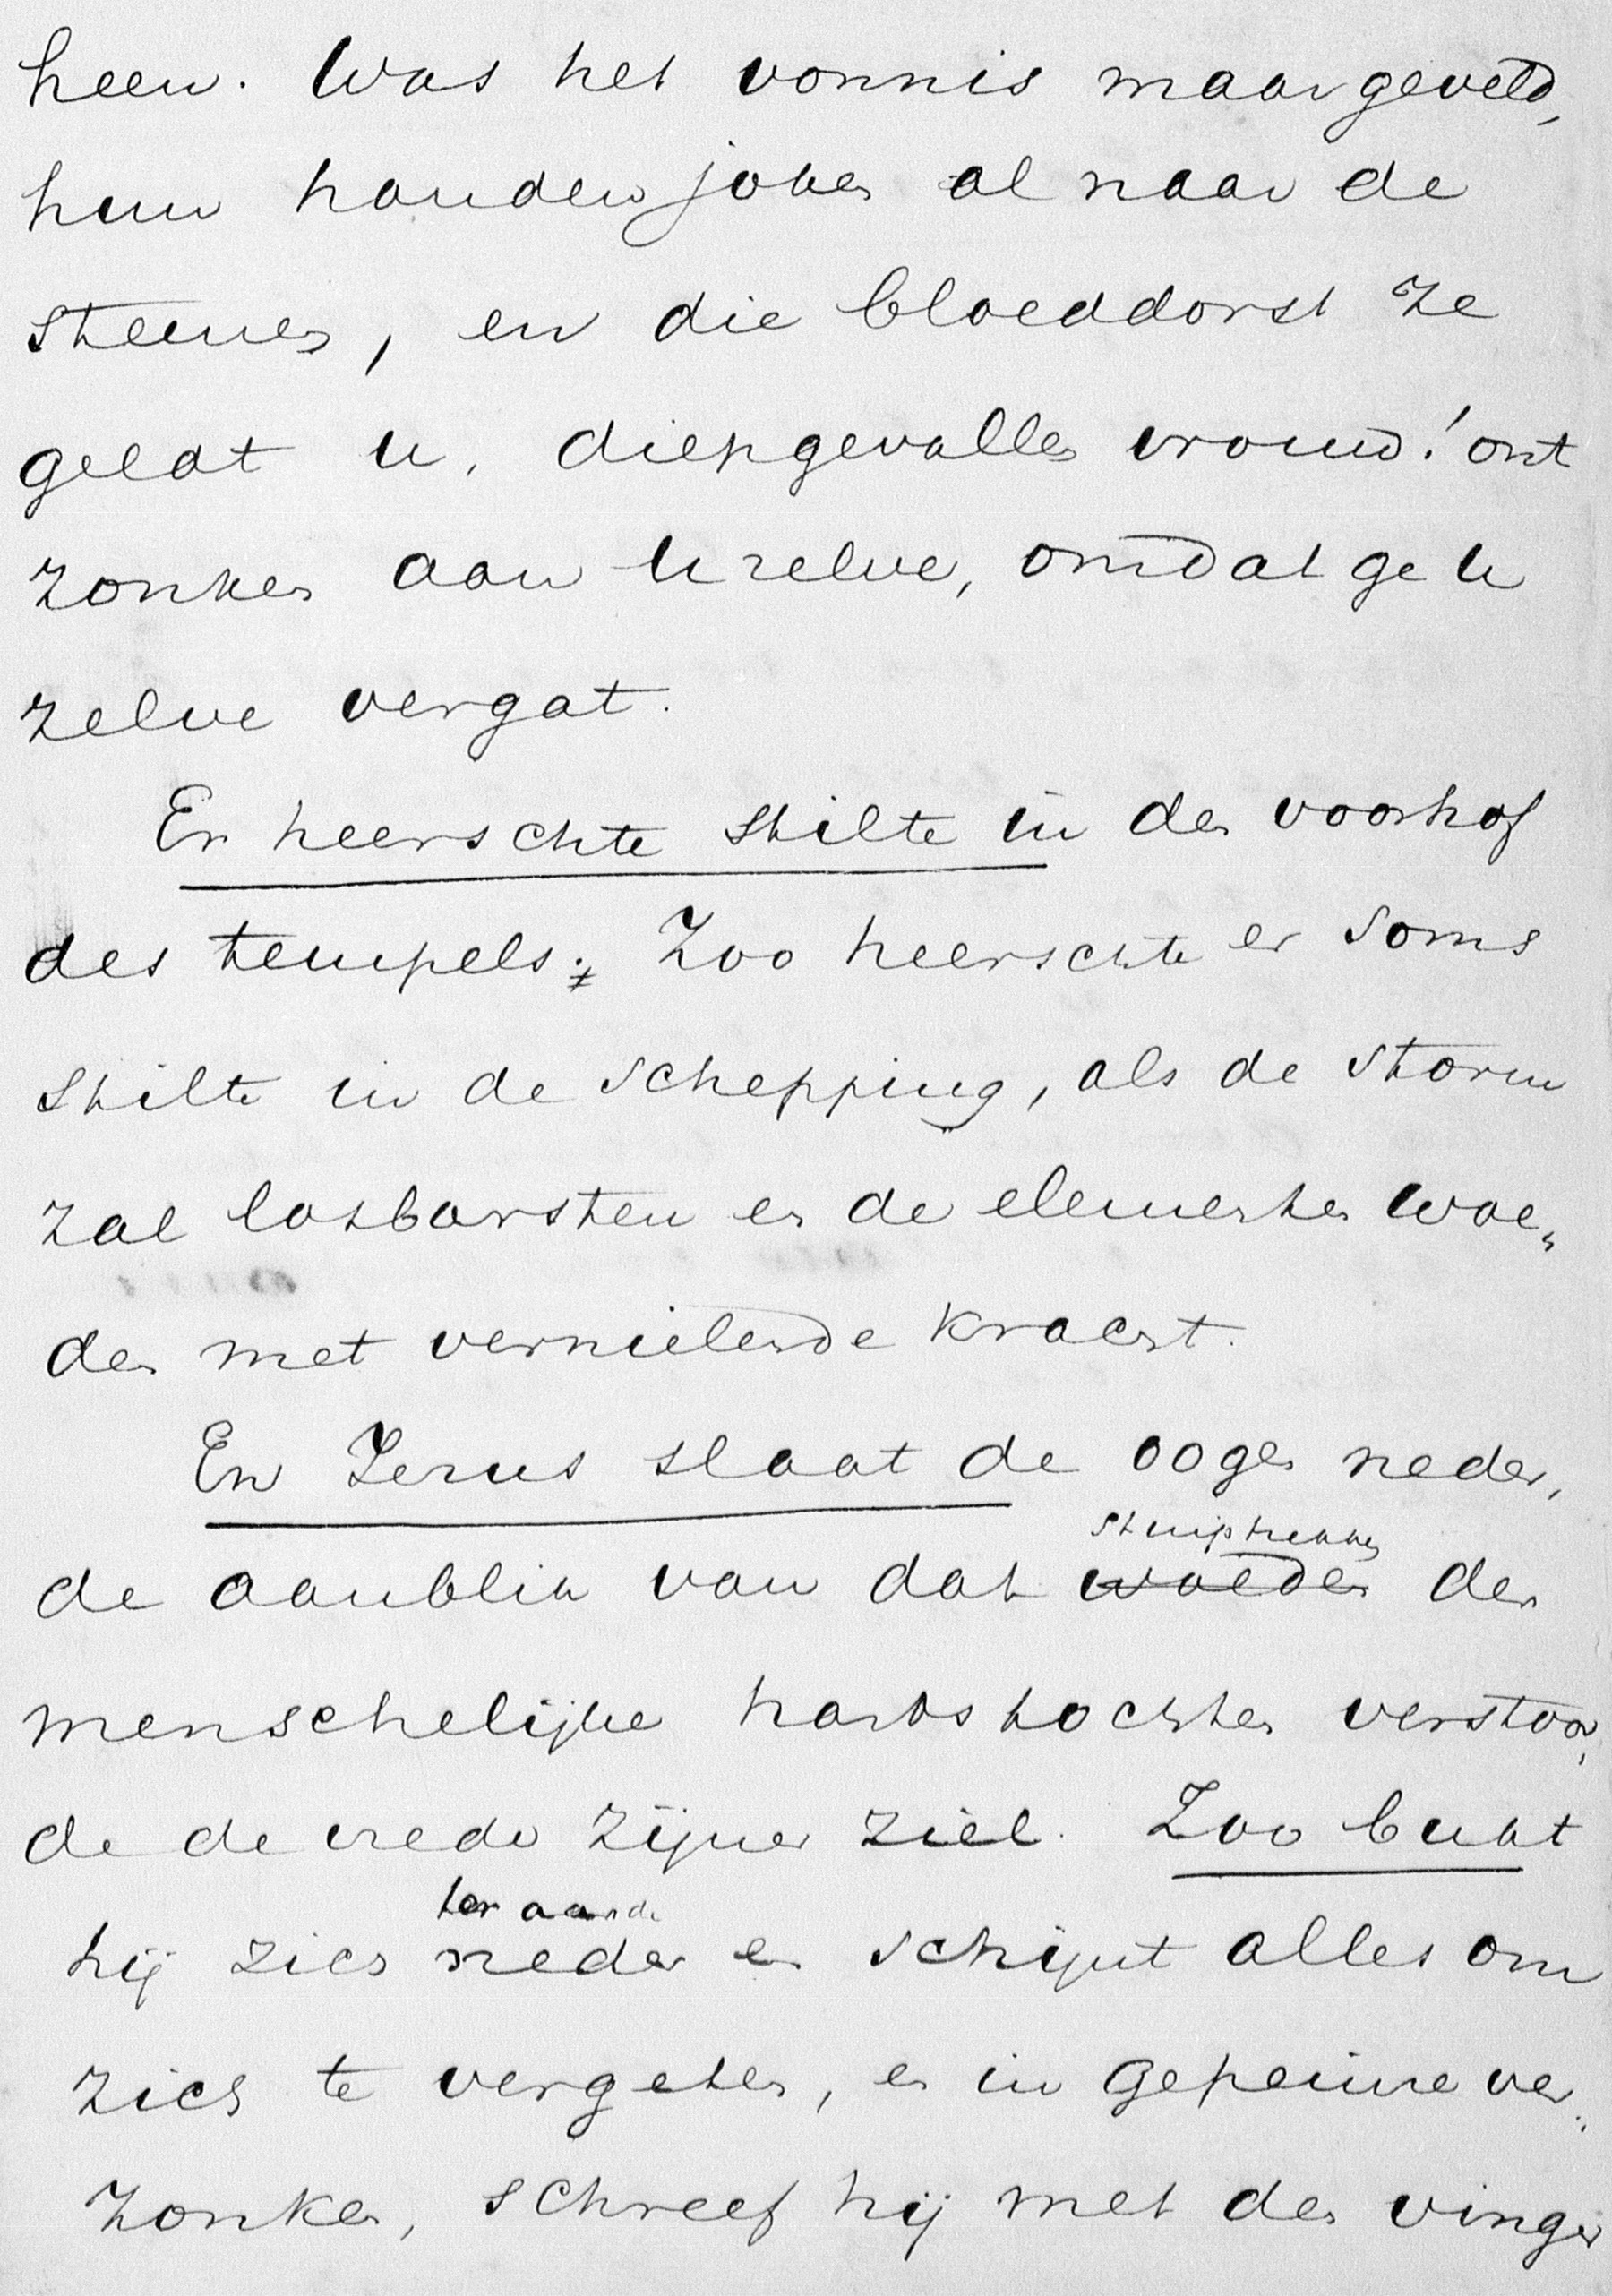 heen. Was het vonnis maar geveld,
hun handen joken al naar de
steenen, en die bloeddorst ze
geldt u, diepgevallen vrouw! ont
zonken aan u zelve, omdat ge u
zelve vergat.
Er heerschte stilte in den voorhof
des tempels. Zoo heerschte er soms
stilte in de schepping, als de storm
zal losbarsten en de elementen woe„
den met vernielende kracht.
En Jezus slaat de oogen neder,
stuiptrekken
de aanblik van dat woeden der
menschelijke hartstochten verstoor„
de de vrede zijner ziel. Zoo bukt
ter aarde
hij zich neder en schijnt alles om
zich te vergeten, en in gepeinze ver„
zonken, schreef hij met den vinger